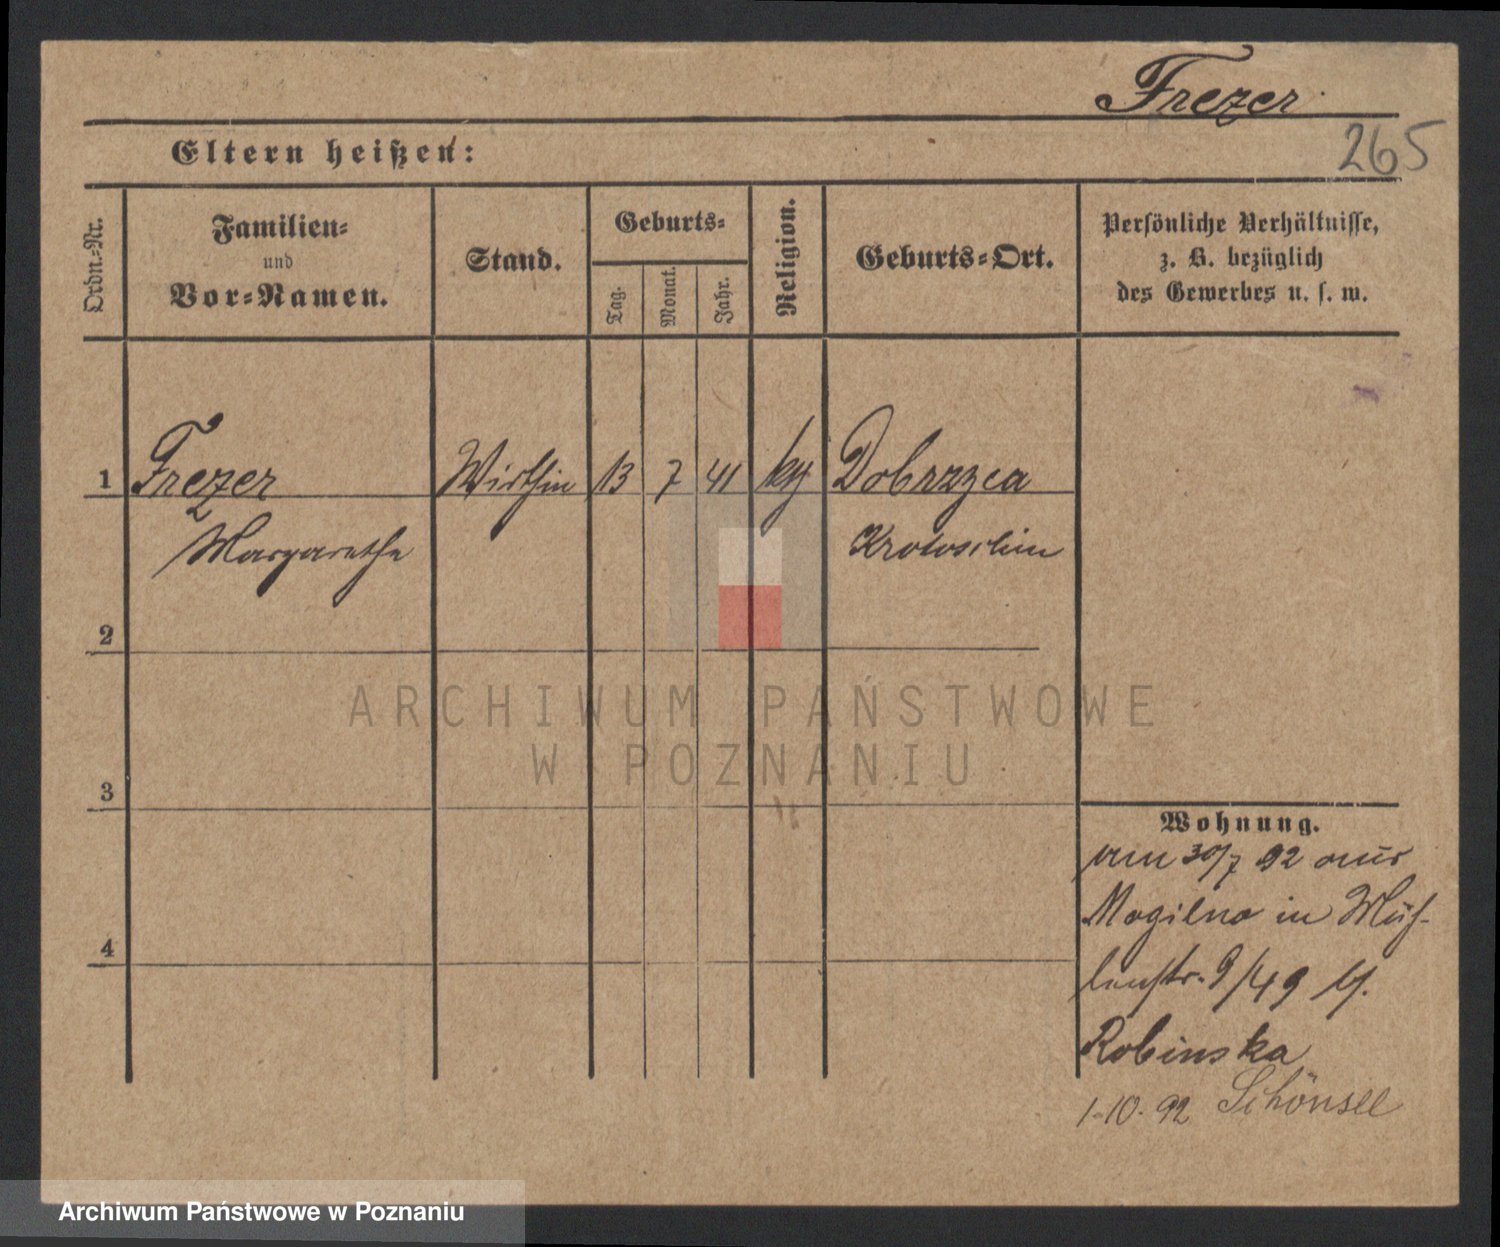 Frezer
265
Eltern heißen:
Ordn.-Nr.
Familien-
und
Vor-Namen.
Stand.
Geburts-
Tag.
Monat.
Jahr.
Religion.
Geburts-Ort.
Persönliche Verhältnisse,
z. B. bezüglich
des Gewerbes u. s. w.
1 Frezer Wirthin 13 7 41 Dobrzyca
Margarethe Krotoschin
2
3
4
Wohnung.
am 30/7 92 aus
Mogilno in Müh-
lenstr. 9/49 b/.
Robinska
1.10.92 Schönsee
ARCHIWUM PAŃSTWOWE
W POZNANIU
Archiwum Państwowe w Poznaniu